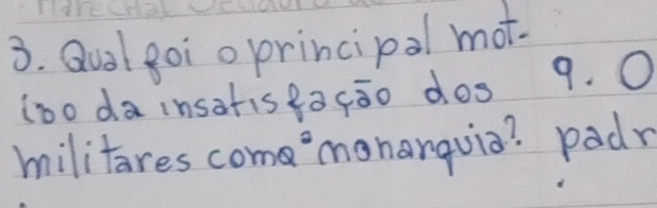 3. Qual foi o principal mot-
ivo da insatisfação dos
militares com a monarquia?
9. O
padr